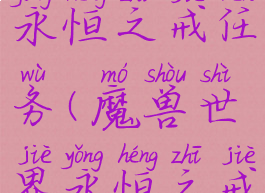 永恒之戒任
wù mó shòu shì
务(魔兽世
jiè yǒng héng zhī jiè
界永恒之戒